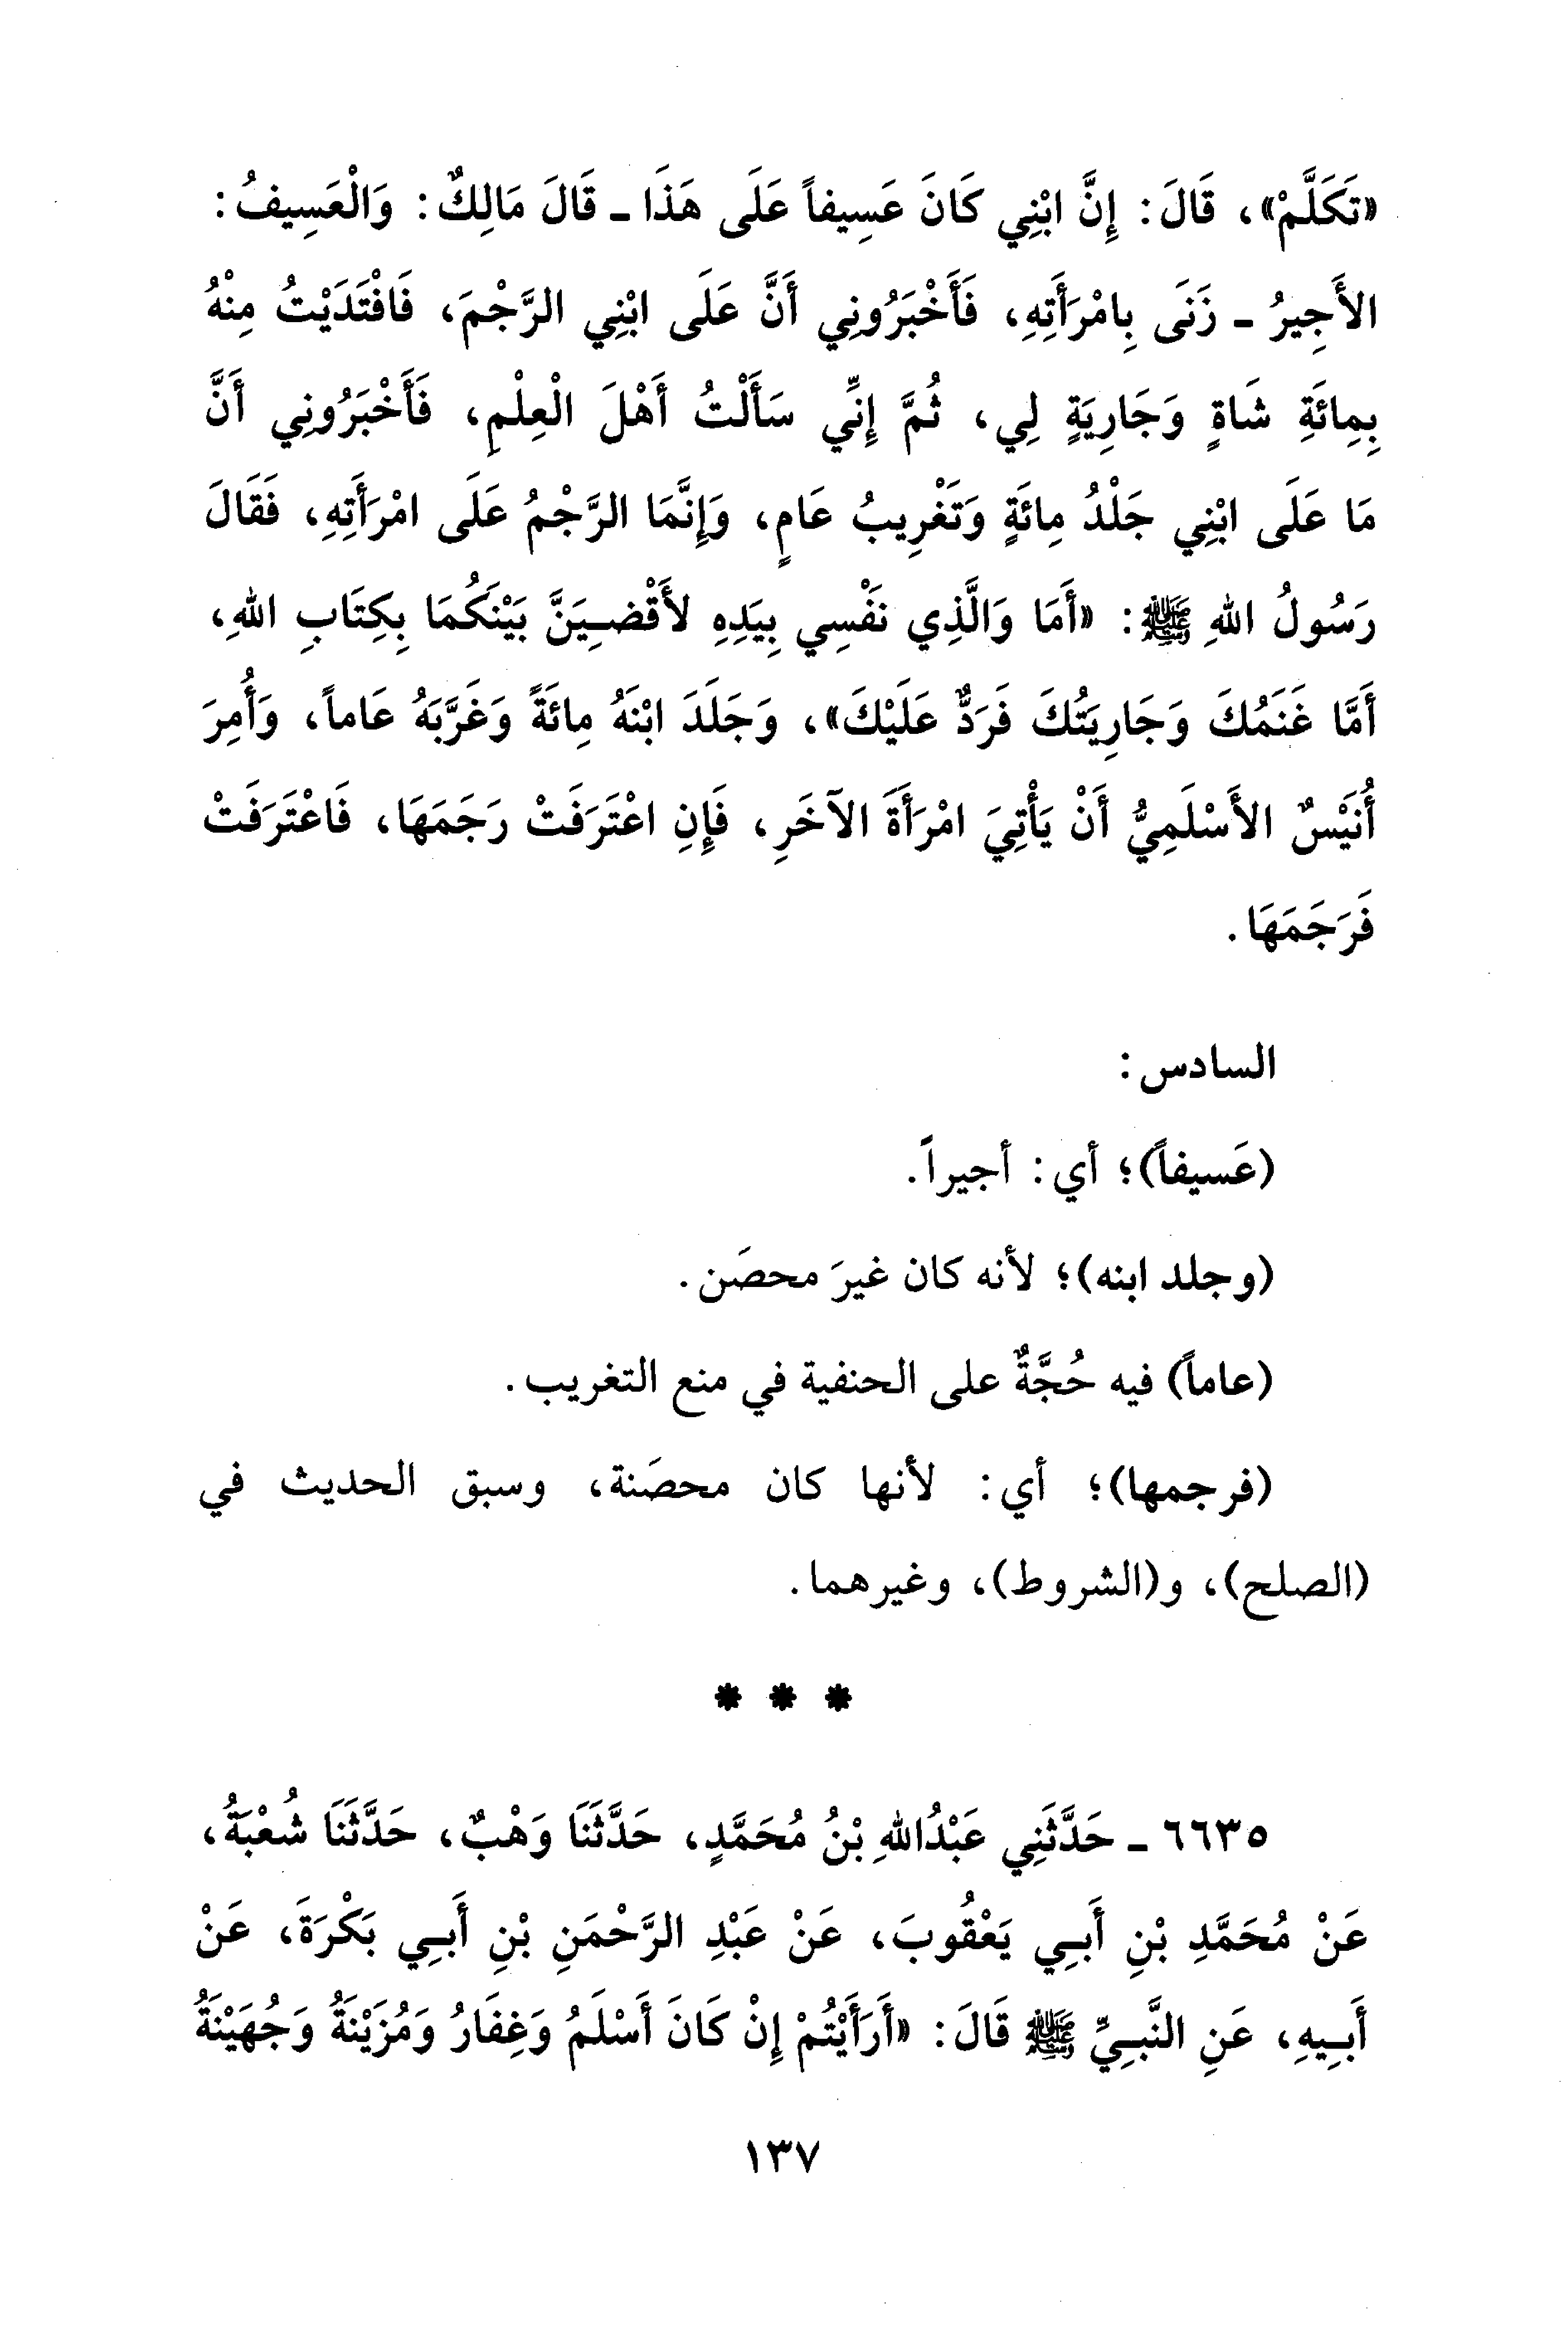 «تَكَلَّمْ»، قَالَ: إِنَّ ابْنِي كَانَ عَسِيفاً عَلَى هَذَا ـ قَالَ مَالِكٌ: وَالْعَسِيفُ:
الأَجِيرُ ـ زَنَى بِامْرَأَتِهِ، فَأَخْبَرُونِي أَنَّ عَلَى ابْنِي الرَّجْمَ، فَافْتَدَيْتُ مِنْهُ
بِمِائَةِ شَاةٍ وَجَارِيَةٍ لِي، ثُمَّ إِنِّي سَأَلْتُ أَهْلَ الْعِلْمِ، فَأَخْبَرُونِي أَنَّ
مَا عَلَى ابْنِي جَلْدُ مِائَةٍ وَتَغْرِيبُ عَامٍ، وَإِنَّمَا الرَّجْمُ عَلَى امْرَأَتِهِ، فَقَالَ
رَسُولُ اللهِ ﷺ: «أَمَا وَالَّذِي نَفْسِي بِيَدِهِ لأَقْضِيَنَّ بَيْنَكُمَا بِكِتَابِ اللهِ،
أَمَّا غَنَمُكَ وَجَارِيَتُكَ فَرَدٌّ عَلَيْكَ»، وَجَلَدَ ابْنَهُ مِائَةً وَغَرَّبَهُ عَاماً، وَأُمِرَ
أُنَيْسٌ الأَسْلَمِيُّ أَنْ يَأْتِيَ امْرَأَةَ الآخَرِ، فَإِنِ اعْتَرَفَتْ رَجَمَهَا، فَاعْتَرَفَتْ
فَرَجَمَهَا.
السادس:
(عَسيفاً)؛ أي: أجيراً.
(وجلد ابنه)؛ لأنه كان غيرَ محصَن.
(عاماً) فيه حُجَّةٌ على الحنفية في منع التغريب.
(فرجمها)؛ أي: لأنها كان محصَنة، وسبق الحديث في
(الصلح)، و(الشروط)، وغيرهما.
* * *
٦٦٣٥ ـ حَدَّثَنِي عَبْدُاللهِ بْنُ مُحَمَّدٍ، حَدَّثَنَا وَهْبٌ، حَدَّثَنَا شُعْبَةُ،
عَنْ مُحَمَّدِ بْنِ أَبِي يَعْقُوبَ، عَنْ عَبْدِ الرَّحْمَنِ بْنِ أَبِي بَكْرَةَ، عَنْ
أَبِيهِ، عَنِ النَّبِيِّ ﷺ قَالَ: «أَرَأَيْتُمْ إِنْ كَانَ أَسْلَمُ وَغِفَارُ وَمُزَيْنَةُ وَجُهَيْنَةُ
١٣٧